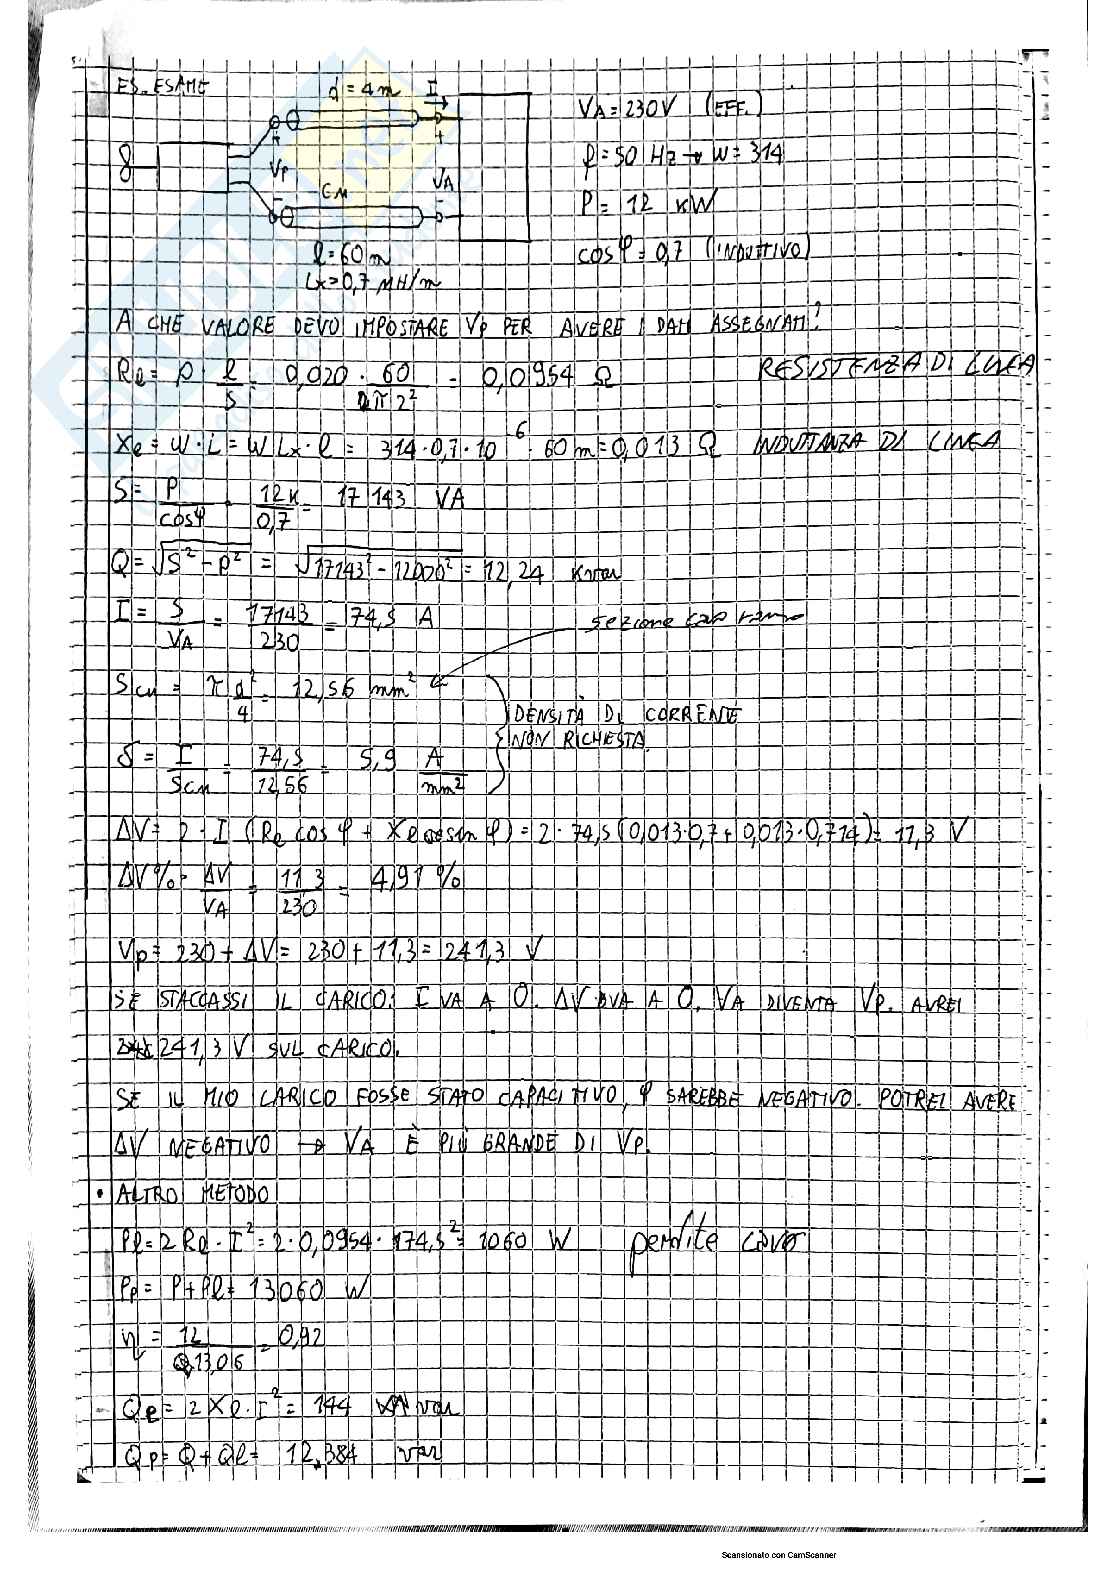 ES. ESAME
d = 4 m
I
VA = 230V (EFF.)
f = 50 Hz → W = 314
P = 12 KW
cosφ = 0,7 (INDUTTIVO)
+
Vp
-
CM
+
VA
-
l = 60 m
Lx = 0,7 μH/m
A CHE VALORE DEVO IMPOSTARE Vp PER AVERE I DATI ASSEGNATI?
Rl = ρ l/S = 0,020 · 60/π 2² = 0,0954 Ω RESISTENZA DI LINEA
Xl = W · L = W Lx · l = 314 · 0,7 · 10⁻⁶ · 60 m = 0,013 Ω INDUTTANZA DI LINEA
S = P/cosφ = 12K/0,7 = 17 143 VA
Q = √S² - P² = √17143² - 12000² = 12,24 Kvar
I = S/VA = 17143/230 = 74,5 A
sezione cavo rame
Scu = π d²/4 = 12,56 mm²
DENSITÀ DI CORRENTE
NON RICHIESTA.
δ = I/Scu = 74,5/12,56 = 5,9 A/mm²
ΔV = 2 · I (Rl cos φ + Xl sin φ) = 2 · 74,5 (0,013 · 0,7 + 0,013 · 0,714) = 11,3 V
ΔV% = ΔV/VA = 11,3/230 = 4,91 %
Vp = 230 + ΔV = 230 + 11,3 = 241,3 V
SE STACCASSI IL CARICO: I VA A 0. ΔV VA A 0. VA DIVENTA Vp. AVREI
241,3 V SUL CARICO.
SE IL MIO CARICO FOSSE STATO CAPACITIVO, φ SAREBBE NEGATIVO. POTREI AVERE
ΔV NEGATIVO → VA È PIÙ GRANDE DI Vp.
• ALTRO METODO
Pl = 2 Rl · I² = 2 · 0,0954 · 174,5² = 1060 W perdite cavo
Pp = P + Pl = 13060 W
η = 12/13,06 = 0,92
Ql = 2 Xl · I² = 144 var
Qp = Q + Ql = 12.384 var
Scansionato con CamScanner